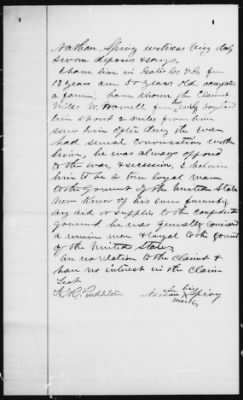 Nathan Spivy witness being duly
sworn deposes & says.
I have live in Gates Co N.C. for
12 years am 50 years old occupation
a farmer, have known the Claimant
Miles W. Howell from his early boyhood
live about 2 miles from him
saw him often during the war
had several conversation with
him, he was always opposed
to the war, & secession, I believe
him to be a true loyal man
to the Government of the United States
never knew of his ever furnishing
any aid or supplies to the confederate
government he was generally considered
a union man & loyal to the government
of the United States
am no relation to the Claimant &
have no interest in the Claim
Test
his
Nathan X Spivy
mark